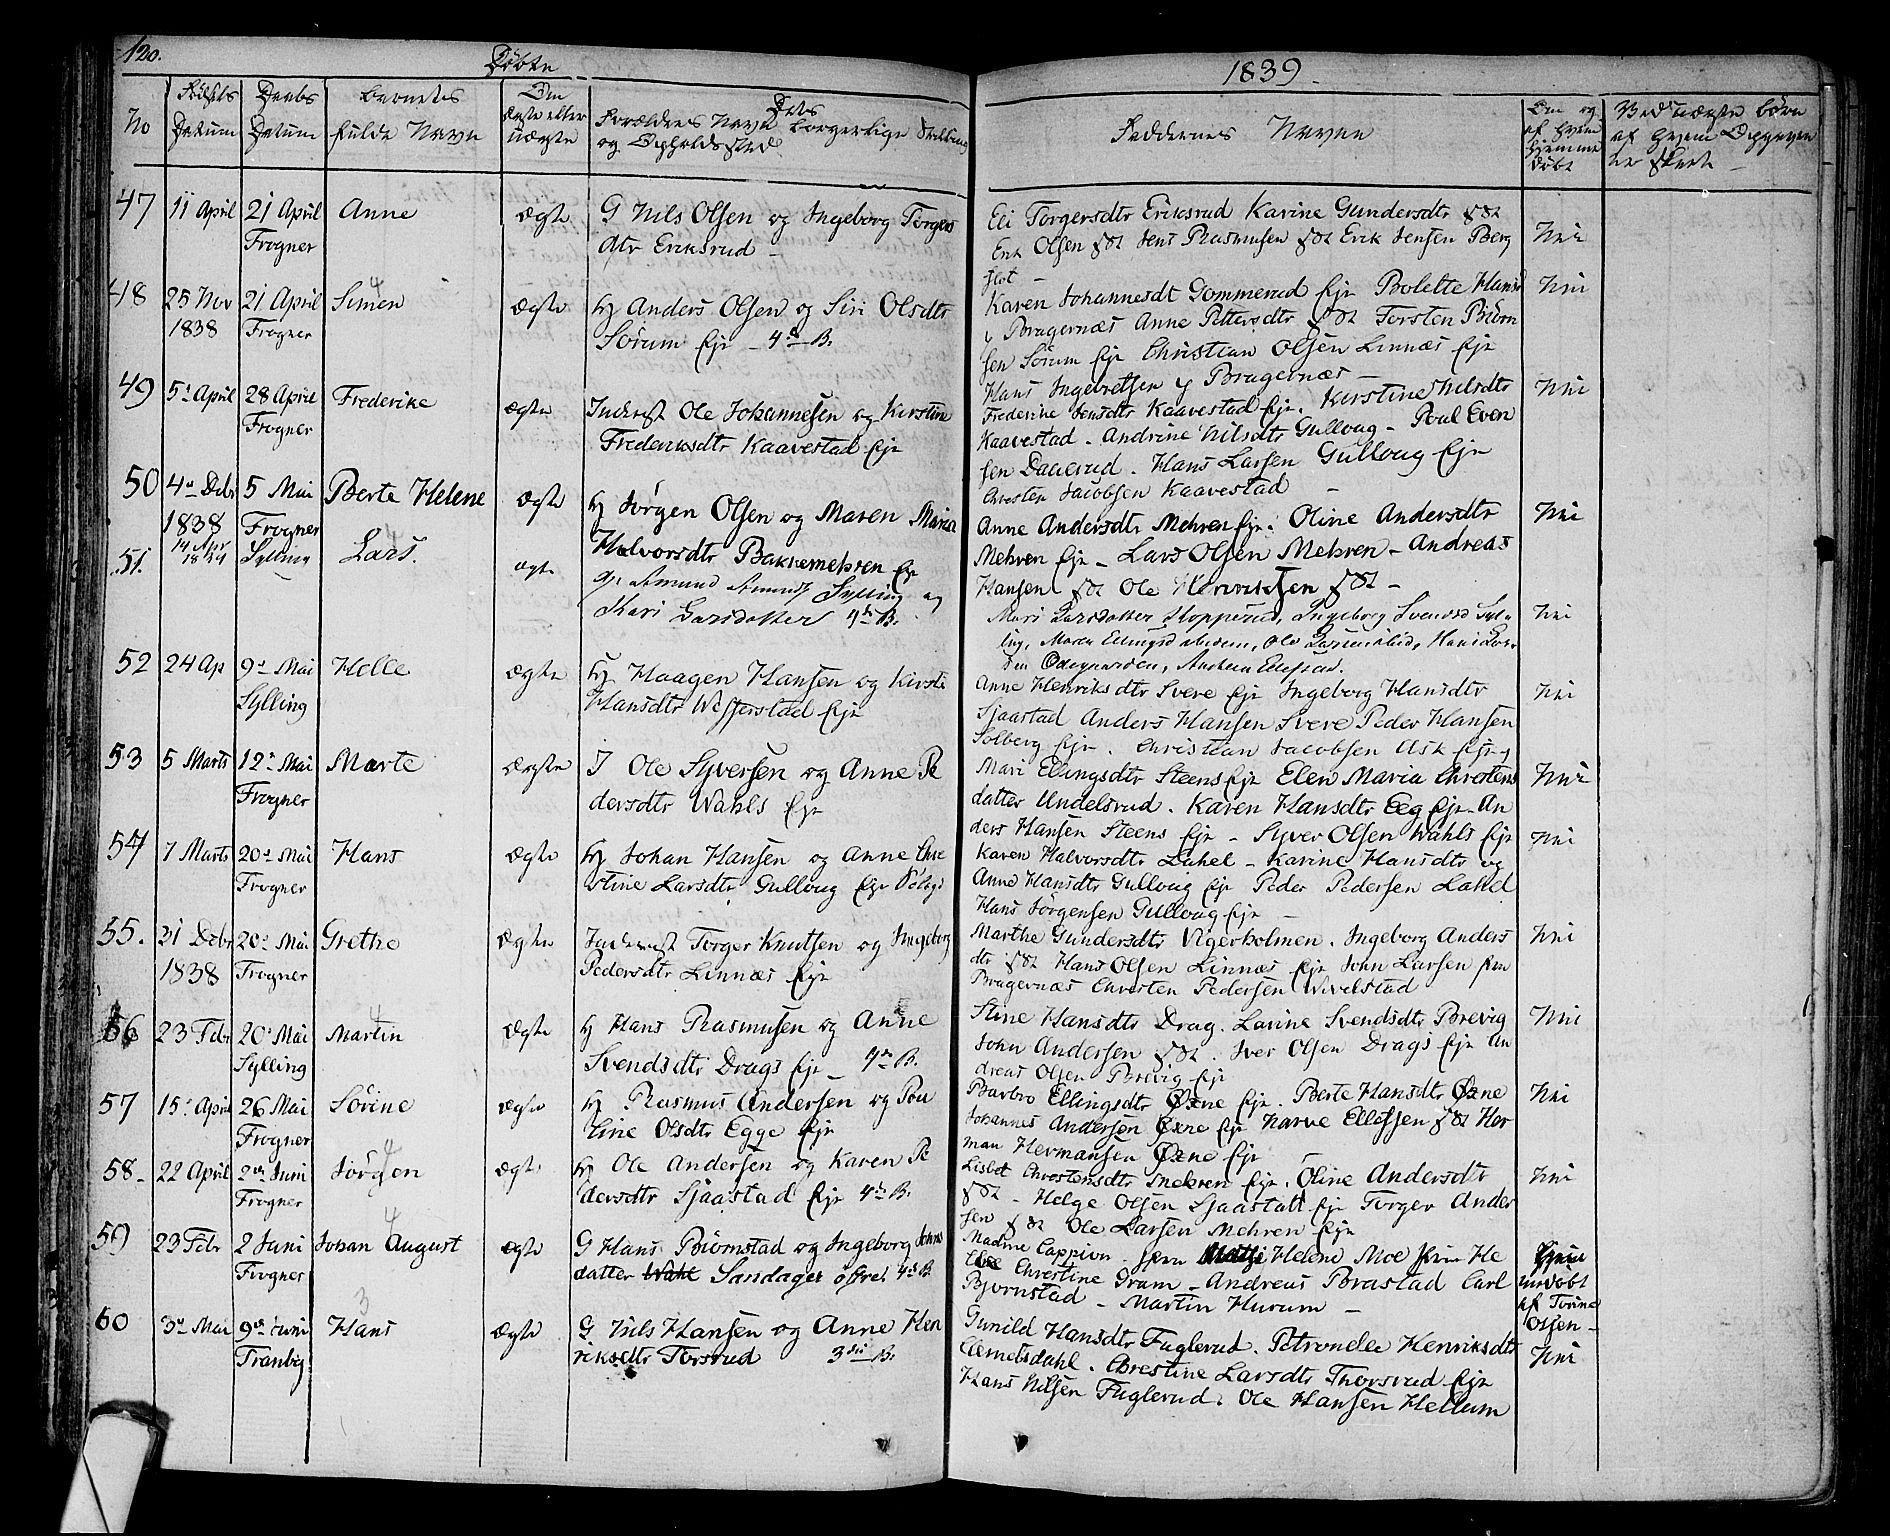 120.
Døbte
1839.
No
Fødsels Datum
Daabs Datum
Barnets fulde Navn
Om Ægte eller uægte
Forældrenes Navn Dets borgerlige Stilling
og Opholdssted
Faddernes Navne
Om og af hvem hjemme døbt
Ved uægte børn
47 11 April 21 April Frogner Anne Ægte
G Nils Olsen og Ingeborg Torgers
dtr Eriksrud –
Eli Torgersdtr Eriksrud Karine Gundersdtr
Olsen Jens Rasmusen Erik Jensen Berg
Nei
48 25 Nov 1838 21 April Frogner Simen 4 Ægte
Hj Anders Olsen og Siri Olsdtr
Sørum Eje – 4de B.
Karen Johannesdt Gommerud Eje Bolette Hansd
Bragernæs Anne Pettersdtr Torsten Biørn
sen Sørum Eje Christian Olsen Linnæs Eje
Hans Ingebretsen Bragernæs –
Nei
49 5 April 28 April Frogner Frederike ægte
Inderst Ole Johannesen og Kirstin
Frederiksdtr Kaavestad Eje
Frederike Jensdtr Kaavestad Eje. Kirstine Nilsdtr
Kaavestad – Andrine Nilsdtr Gulloug – Poul Even
sen Daaerud. Hans Larsen Gulloug Eje
Christen Jacobsen Kaavestad –
Nei
50 4 Debr 1838 5 Mai Frogner Berte Helene Ægte
Hj Jørgen Olsen og Maren Maria
Halvorsdtr Bakkemehren Eje
Anne Andersdtr Mehren Eje. Oline Andersdtr
Mehren Eje – Lars Olsen Mehren – Andreas
Hansen Ole Henriksen –
Nei
51. 14 Apr Sylling Lars. 4 ægte
Amund Amunds Sylling og
Kari Larsdatter 4de B.
Mari Larsdatter Hopperud, Ingeborg Svendsd Syl
ling, Maren Ellingsd
Ødegaarden,
Nei
52 24 Ap 9 Mai Sylling Helle Ægte
Hj. Haagen Hansen og Kirsti
Hansdtr Wefferstad Eje
Anne Henriksdtr Svere Eje Ingeborg Hansdtr
Sjaastad Anders Hansen Svere Peder Hansen
Solberg Eje. Christian Jacobsen Ask Eje
Nei
53 5 Marts 12 Mai Frogner Marte Ægte
I Ole Syversen og Anne Pe
dersdtr Wahls Eje
Mari Ellingsdtr Steens Eje Elen Maria Christens
datter Undelsrud. Karen Hansdtr Eeg Eje An
ders Hansen Steens Eje – Syver Olsen Wahls Eje
Nei
54 7 Marts 20 Mai Frogner Hans Ægte
Hj Johan Hansen og Anne Chri
stine Larsdtr Gulloug Eje
Karen Halvorsdtr Lahel – Karine Hansdtr og
Anne Hansdtr Gulloug Eje Peder Pedersen Lahel
Hans Jørgensen Gulloug Eje –
Nei
55. 31 Debr 1838 20 Mai Frogner Grethe Ægte
Inderst Torger Knutsen og Ingeborg
Pedersdtr Linnæs Eje
Marthe Gundersdtr Vigerholmen. Ingeborg Anders
dtr Hans Olsen Linnæs Eje John Larsen
Bragernæs Christen Pedersen Wivelstad
Nei
56 23 Febr 20 Mai Sylling Martin 4 Ægte
Hj Hans Rasmusen og Anne
Svendsdtr Drags Eje – 4de B.
Stine Hansdtr Drag. Larine Svendsdtr Brevig
John Andersen. Iver Olsen Drags Eje An
dreas Olsen Brevig Eje
Nei
57 15 April 26 Mai Frogner Sørine ægte
Hj Rasmus Andersen og Pou
line Olsdtr Egge Eje
Barbro Ellingsdtr Øxne Eje. Berte Hansdtr Øxne
Johannes Andersen Øxne Eje Narve Ellefsen Her
man Hermansen Øxne Eje
Nei
58 – 22 April 2den Juni Frogner Jørgen 4 Ægte
Hj Ole Andersen og Karen Pe
dersdtr Sjaastad Eje 4de B.
Lisbet Christensdtr Mehren Eje. Oline Andersdtr
– Helge Olsen Sjaastad Eje Torger Ander
sen Ole Larsen Mehren Eje
Nei
59 23 Febr 2 Juni Frogner Johan August 4 Ægte
G Hans Biørnstad og Ingeborg Johns
datter Wahl Sandager øfre. 4de B.
Madme Cappien. Helene Moe
Christine Dram – Andreas Brastad Carl
Bjørnstad – Martin Hurum –
Hjem
medøbt
af Torine
Olsen –
60 3 Mai 9de Juni Tranby Hans 3 Ægte
G Nils Hansen og Anne Hen
riksdtr Torsrud 3die B.
Gunild Hansdtr Fuglerud. Petronelle Henriksdtr
Clemetsdahl. Chrestine Larsdtr Thorsrud Eje
Hans Nilsen Fuglerud. Ole Hansen Hellum
Nei